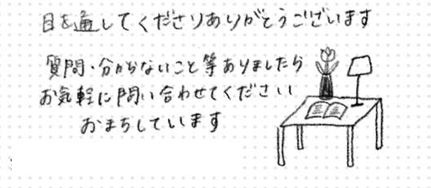 目を通してくださりありがとうございます
質問・分からないこと等ありましたら
お気軽に問い合わせてください
おまちしています